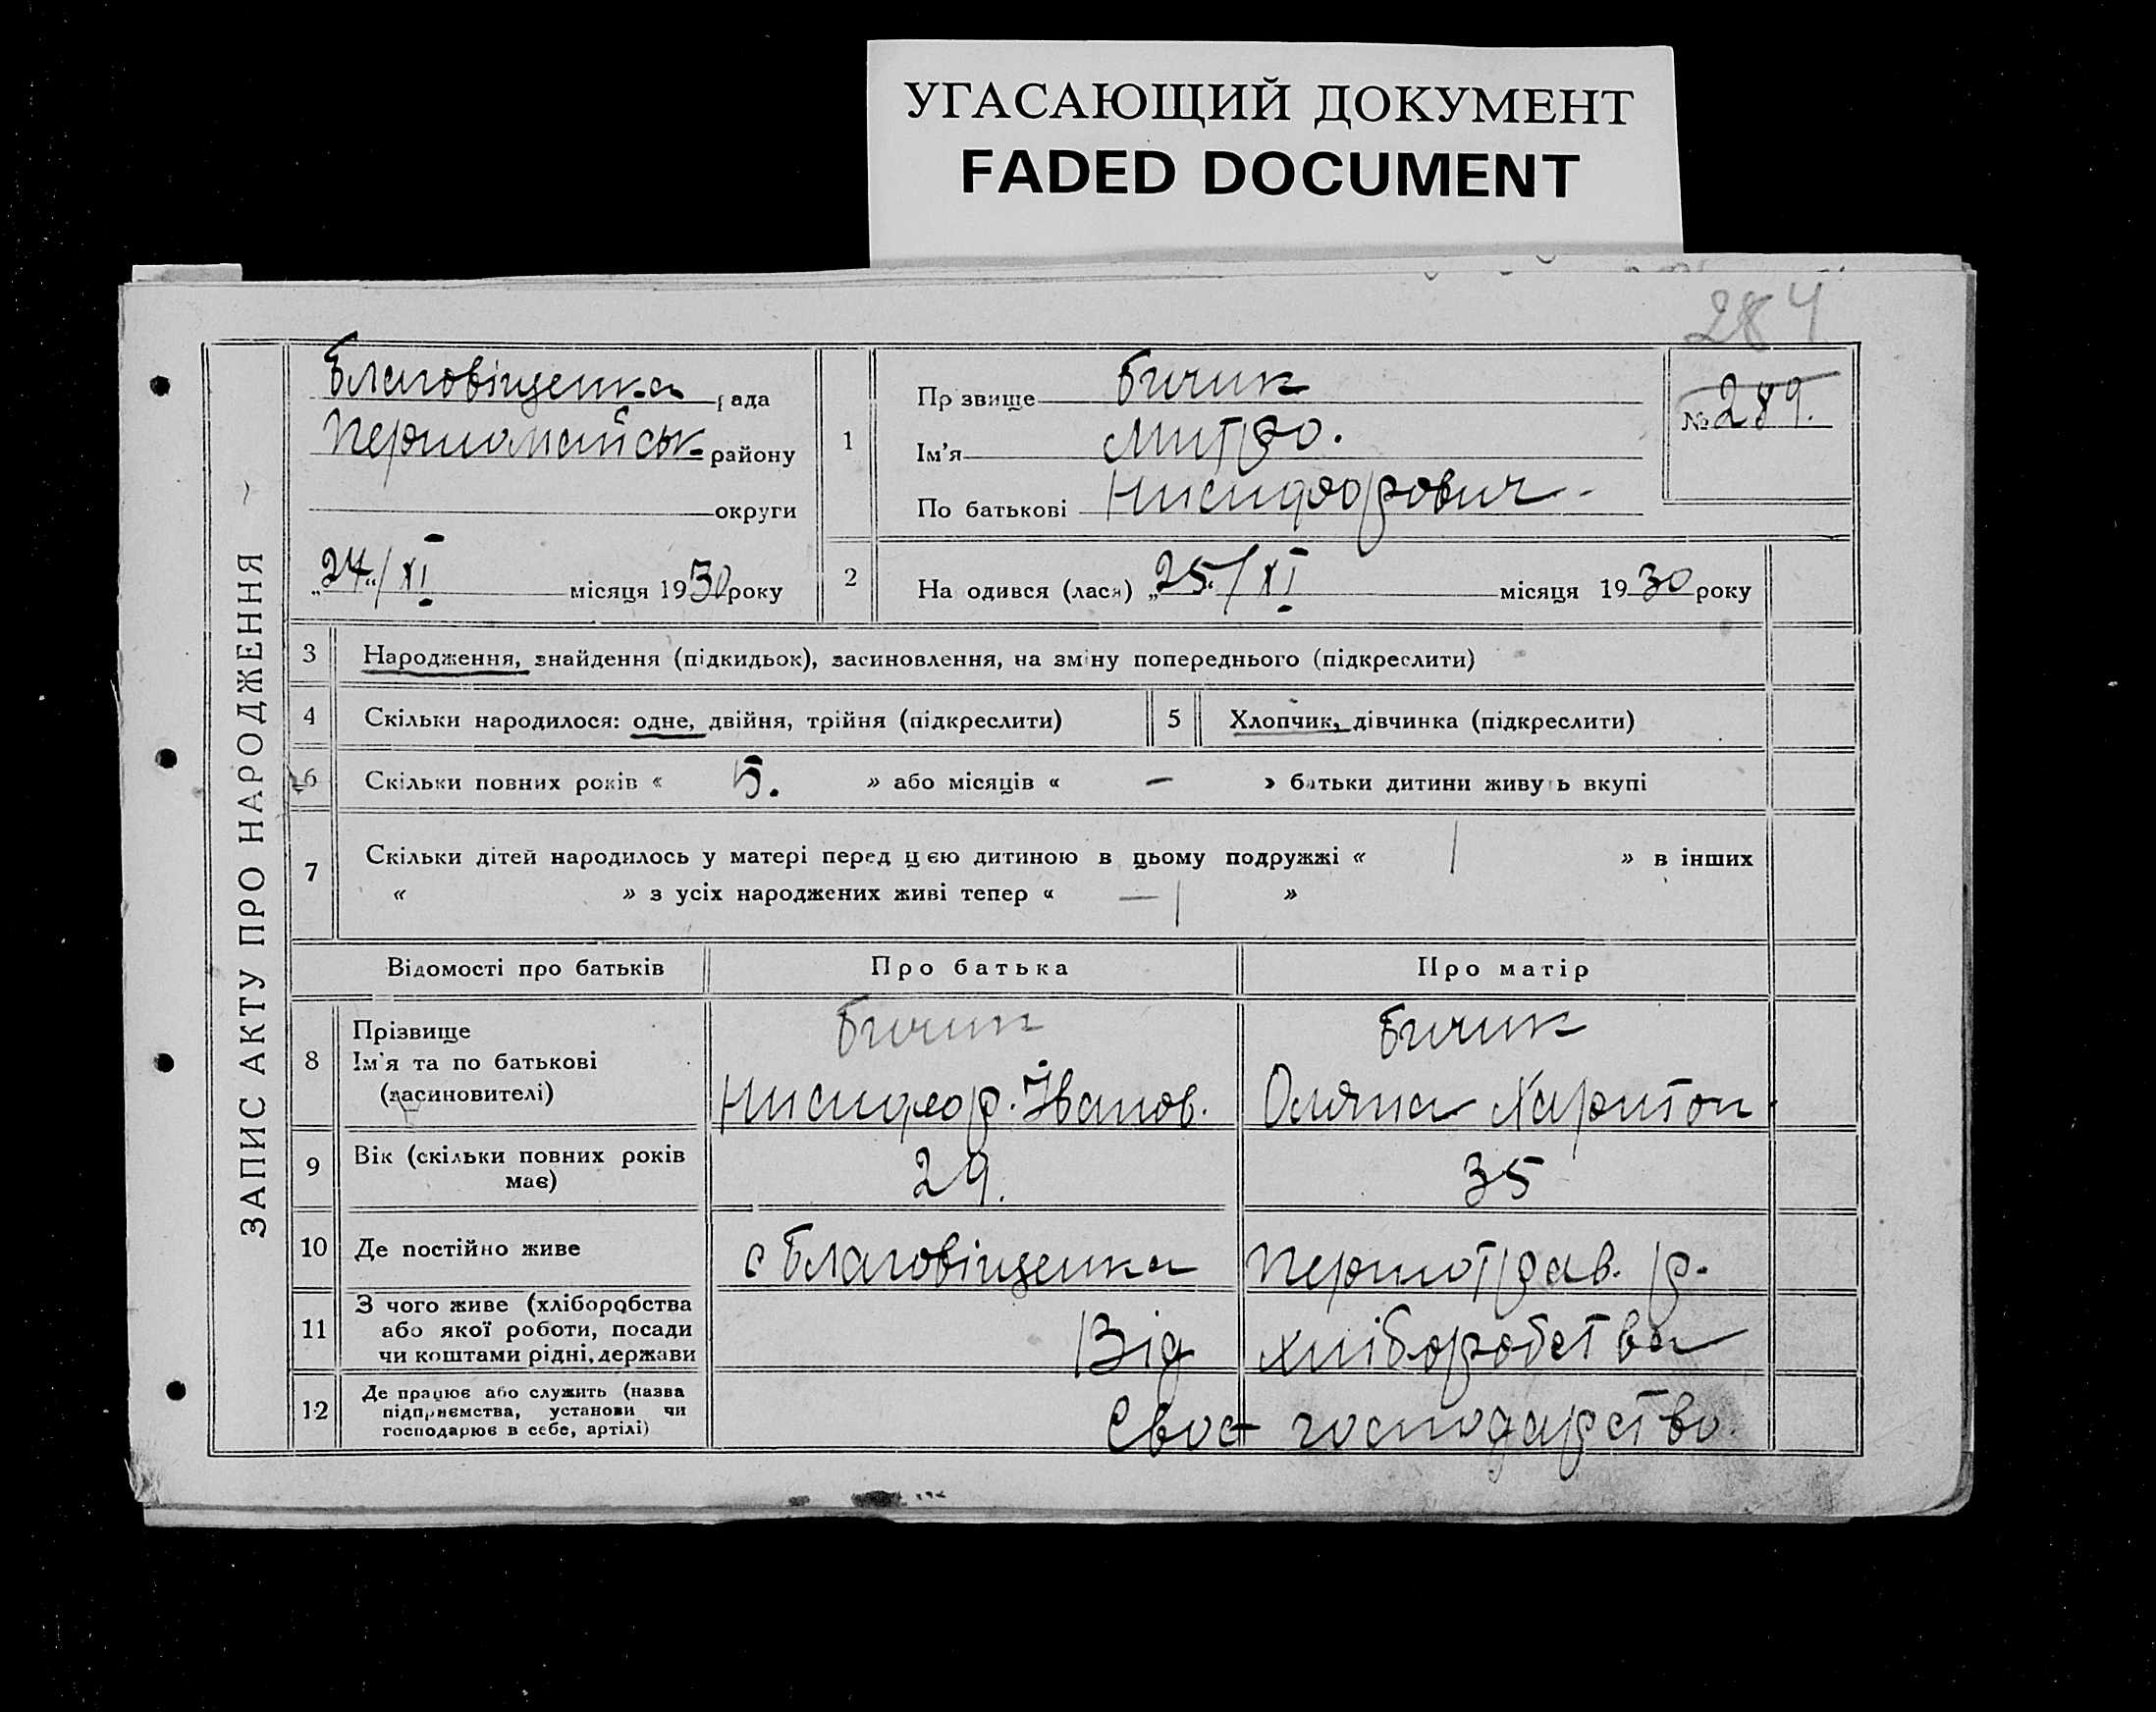 УГАСАЮЩИЙ ДОКУМЕНТ
FADED DOCUMENT
284
ЗАПИС АКТУ ПРО НАРОДЖЕННЯ
Благовіщенка рада
Першомайськ. району
округи
„24“/XI місяця 1930 року
1
Прізвище Бичик
Ім'я Митро.
По батькові Нисифорович
№ 289.
2
На одився (лася) „25“/XI місяця 1930 року
3 Народження, знайдення (підкидьок), засиновлення, на зміну попереднього (підкреслити)
4 Скільки народилося: одне, двійня, трійня (підкреслити)
5 Хлопчик, дівчинка (підкреслити)
6 Скільки повних років « 5. » або місяців « – » батьки дитини живуть вкупі
7 Скільки дітей народилось у матері перед цією дитиною в цьому подружжі « 1 » в інших
« » з усіх народжених живі тепер « — 1 »
Відомості про батьків Про батька Про матір
8 Прізвище
Ім'я та по батькові
(засиновителі)
Бичик
Нисифор. Іванов.
Бичик
Оляна Харитон.
9 Вік (скільки повних років
має)
29.
35
10 Де постійно живе
с Благовіщенка Першотрав. р.
11 З чого живе (хліборобства
або якої роботи, посади
чи коштами рідні, держави
Від хліборобства
12 Де працює або служить (назва
підприємства, установи чи
господарює в себе, артілі)
Своє господарство.